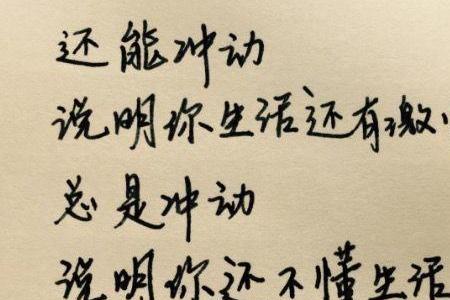 还能冲动
说明你生活还有激
总是冲动
说明你还不懂生活